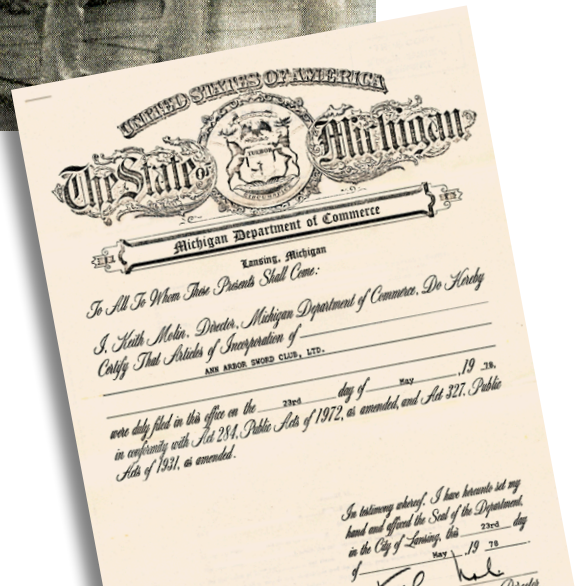 UNITED STATES OF AMERICA
The State Of Michigan
TUEBOR
Michigan Department of Commerce
Lansing, Michigan
To All To Whom These Presents Shall Come:
I, Keith Molin, Director, Michigan Department of Commerce, Do Hereby
Certify That Articles of Incorporation of
ANN ARBOR SWORD CLUB, LTD.
were duly filed in this office on the 23rd day of May , 19 78,
in conformity with Act 284, Public Acts of 1972, as amended, and Act 327, Public
Acts of 1931, as amended.
In testimony whereof, I have hereunto set my
hand and affixed the Seal of the Department,
in the City of Lansing, this 23rd day
of May , 19 78
Director